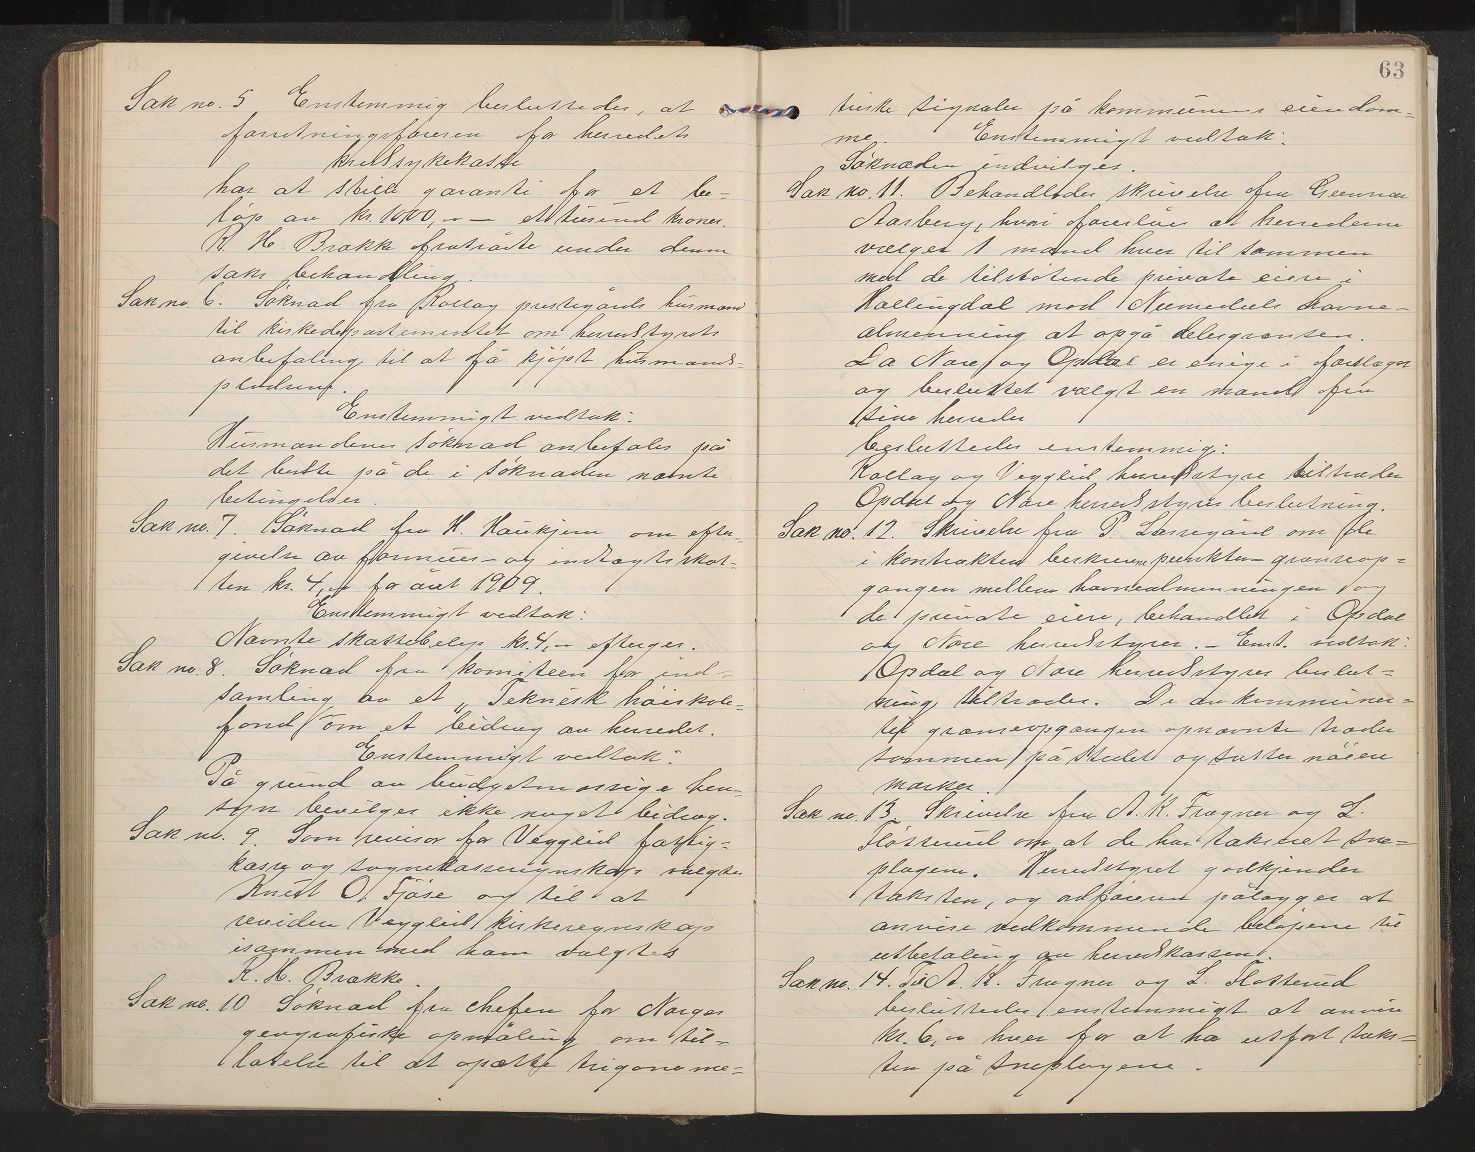 Sak no. 5 Enstemmig besluttedes, at
forretningsføreren for herredets
kredssykekasse
har at stille garanti for et be-
løp av kr. 1000,00 — et tusund kroner.
K. H. Brække fratraadte under denne
saks behandling.
Sak no. 6. Søknad fra Rollag prestegårds husmænd
til kirkedepartementet om herredstyrets
anbefaling til at få kjøpt husmands-
pladsene.
Enstemmigt vedtak:
Husmændenes søknad anbefales på
det beste på de i søknaden nævnte
betingelser.
Sak no. 7. Søknad fra H. Haukjem om efter-
givelse av formues- og indtægtsskat-
ten kr. 4,00 for året 1909.
Enstemmigt vedtak:
Nævnte skattebeløp kr. 4,00 efterges.
Sak no. 8 Søknad fra komiteen for ind-
samling av et „Teknisk høiskole-
fond“ om et bidrag av herredet.
Enstemmigt vedtak:
På grund av budgetmæssige hen-
syn bevilges ikke noget bidrag.
Sak no. 9. Som revisor for Veggli fattig-
kasse og sognekasseregnskap valgtes
Knut O. Fjøse og til at
revidere Veggli kirkeregnskap
isammen med ham valgtes
K. H. Brække.
Sak no. 10 Søknad fra chefen for Norges
geografiske opmåling om til-
latelse til at opsætte trigonome-
63
triske signaler på kommunens eiendom-
me. Enstemmigt vedtak:
Søknaden indvilges.
Sak no. 11. Behandledes skrivelse fra Gunnar
Aasberg, hvori foreslås at herrederne
vælger 1 mand hver til sammen
med de tilstøtende private eiere i
Hallingdal mod Numedals havne-
almenning at opgå delesgrænsen.
Da Nore og Opdal er enige i forslaget
og besluttet vælgt en mand fra
sine herreder
besluttedes enstemmig:
Rollag og Veggli herredstyre tiltræder
Opdal og Nore herredstyres beslutning.
Sak no. 12. Skrivelse fra P. Lassegård om de
i kontrakten beskrevne punkter grænseop-
gangen mellem havnealmenningen og
de private eiere, behandlet i Opdal
og Nore herredstyrer. — Enst. vedtak:
Opdal og Nore herredstyres beslut-
ning tiltrædes. De av kommuner-
til grænseopgangen opnævnte træder
sammen på stedet og sætter nøiere
merker.
Sak no. 13. Skrivelse fra A. K. Fragner og L.
Fløsterud om at de har taksert sne-
plogene. Herredstyret godkjender
taksten, og ordføreren pålægges at
anvise vedkommende beløpene til
utbetaling av herredskassen.
Sak no. 14. Til A. K. Fragner og L. Fløsterud
besluttedes enstemmigt at anvise
kr. 6,00 hver for at ha utført taks-
ten på sneplogene.